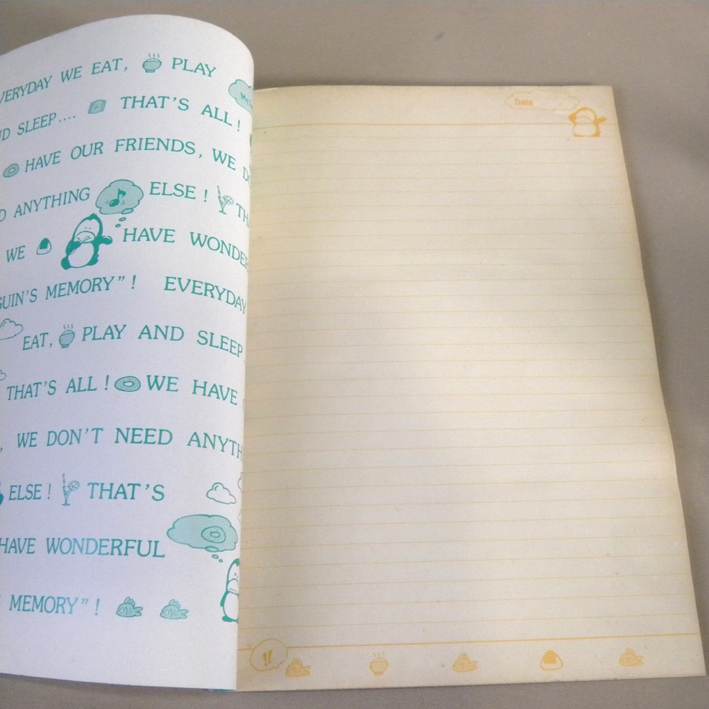 EVERYDAY WE EAT, PLAY
AND SLEEP.... THAT'S ALL!
HAVE OUR FRIENDS, WE
ANYTHING ELSE!
WE HAVE WONDERFUL
PENGUIN'S MEMORY"! EVERYDAY
EAT, PLAY AND SLEEP
THAT'S ALL! WE HAVE
, WE DON'T NEED ANYTH
ELSE! THAT'S
HAVE WONDERFUL
MEMORY"!
Date
!!